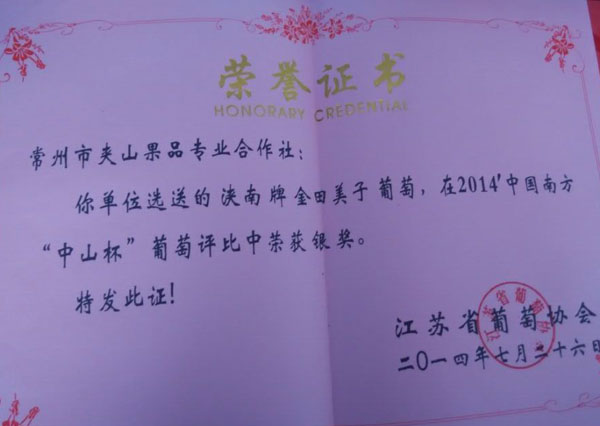 荣誉证书
HONORARY CREDENTIAL
常州市夹山果品专业合作社：
你单位选送的浃南牌金田美子葡萄，在2014'中国南方
“中山杯”葡萄评比中荣获银奖。
特发此证！
江苏省葡萄协会
二〇一四年七月二十六日